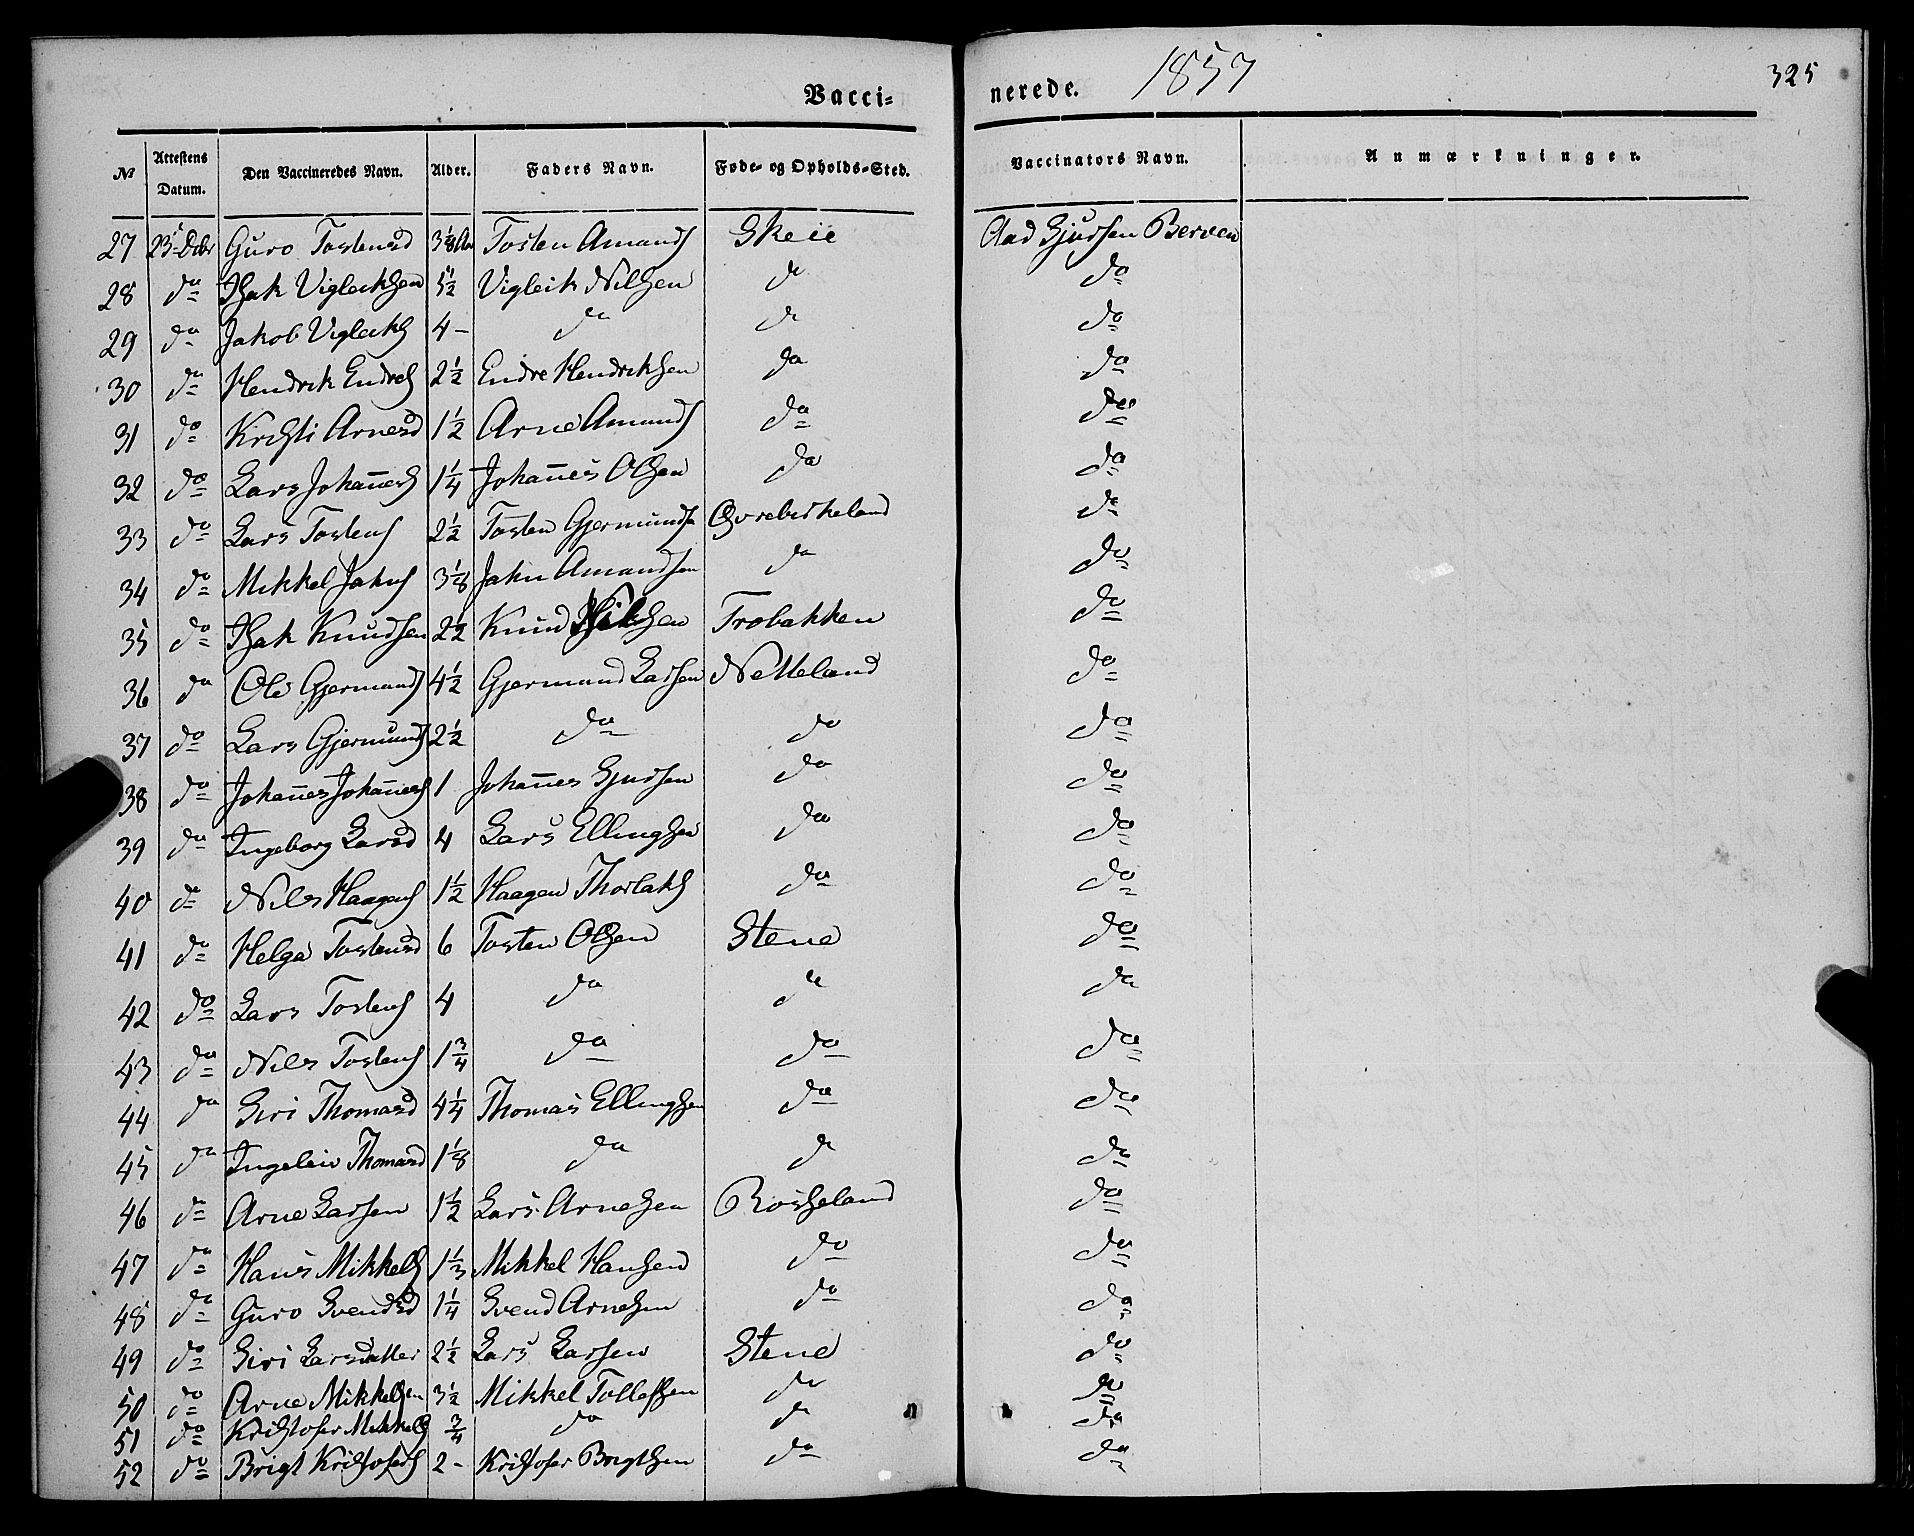 Vacci- nerede. 1857 325
№ Attestens Datum. Den Vaccineredes Navn. Alder. Faders Navn. Føde- og Opholds-Sted. Vaccinators Navn. Anmærkninger.
27 23 Dcbr Guro Tostensd 3⅛ Aar Tosten Amunds Skeie Aad Sjursen Berven
28 do Isak Vigleiksen 5½ Vigleik Nilsen do do
29 do Jakob Vigleiks 4- do do do
30 do Hendrik Endres 2½ Endre Hendriksen do do
31 do Kristi Arnesd 1½ Arne Amunds do do
32 do Lars Johan̄es 1¼ Johan̄es Olsen do do
33 do Lars Tostens 2½ Tosten Gjermunds Øvrebirkeland do
34 do Mikkel Jahns 3⅛ Jahn Amundsen do do
35 do Isak Knudsen 2½ Knud Nilsen Trobakken do
36 do Ole Gjermunds 4½ Gjermund Larsen Netteland do
37 do Lars Gjermunds 2½ do do do
38 do Johan̄es Johan̄es 1 Johan̄es Sjursen do do
39 do Ingeborg Larsd 4 Lars Ellingsen do do
40 do Nils Haagens 1½ Haagen Thorlaks do do
41 do Helga Tostensd 6 Tosten Olsen Stene do
42 do Lars Tostens 4 do do do
43 do Nils Tostens 1¾ do do do
44 do Siri Thomasd 4¼ Thomas Ellingsen do do
45 do Ingeleiv Thomasd 1⅛ do do do
46 do Arne Larsen 1½ Lars Arnesen Rosseland do
47 do Hans Mikkels 1⅓ Mikkel Hansen do do
48 do Guro Svendsd 1¼ Svend Arnesen do do
49 do Siri Larsdatter 2½ Lars Larsen Stene do
50 do Arne Mikkelsen 3½ Mikkel Tollefsen do do
51 do Kristofer Mikkels ¾ do do do
52 do Brigt Kristofers 2- Kristofer Brigtsen do do